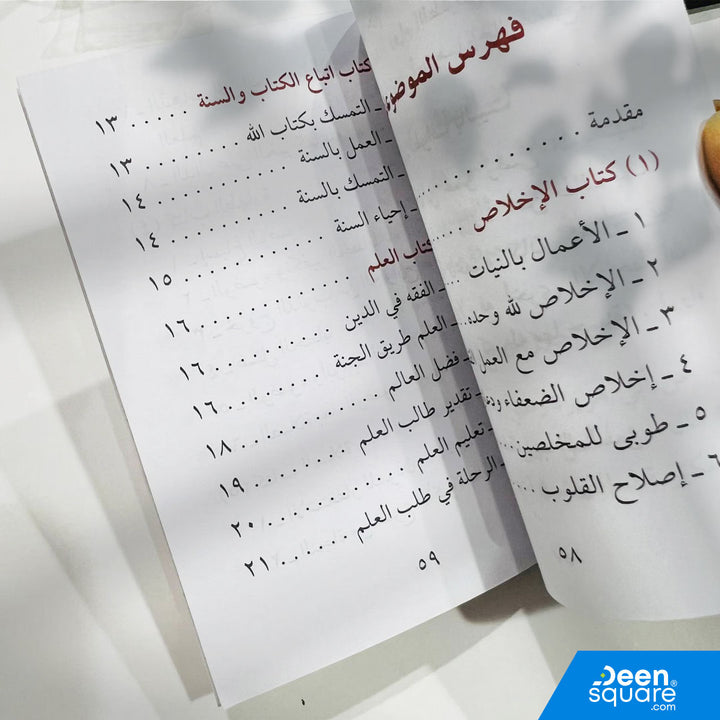 فهرس
مقدمة . . . . . . . . . . . . .
(١) كتاب الإخلاص . . . . .
١ ـ الأعمال بالنيات . . .
٢ ـ الإخلاص لله وحده . . .
٣ ـ الإخلاص مع العمل
٤ ـ إخلاص الضعفاء
٥ ـ طوبى للمخلصين . . .
٦ ـ إصلاح القلوب . . . .
٥٨
كتاب اتباع الكتاب والسنة . . . . . ١٣
ـ التمسك بكتاب الله . . . . . . . . ١٣
ـ العمل بالسنة . . . . . . . . . . . . ١٤
ـ التمسك بالسنة . . . . . . . . . . . ١٤
ـ إحياء السنة . . . . . . . . . . . . ١٥
كتاب العلم . . . . . . . . . . . . . ١٦
ـ الفقه في الدين . . . . . . . . . . . ١٦
ـ العلم طريق الجنة . . . . . . . . . ١٦
فضل العالم . . . . . . . . . . . . . ١٨
تقدير طالب العلم . . . . . . . . . ١٩
تعليم العلم . . . . . . . . . . . . . ٢٠
الرحلة في طلب العلم . . . . . . ٢١
٥٩
Deen
square®
.com